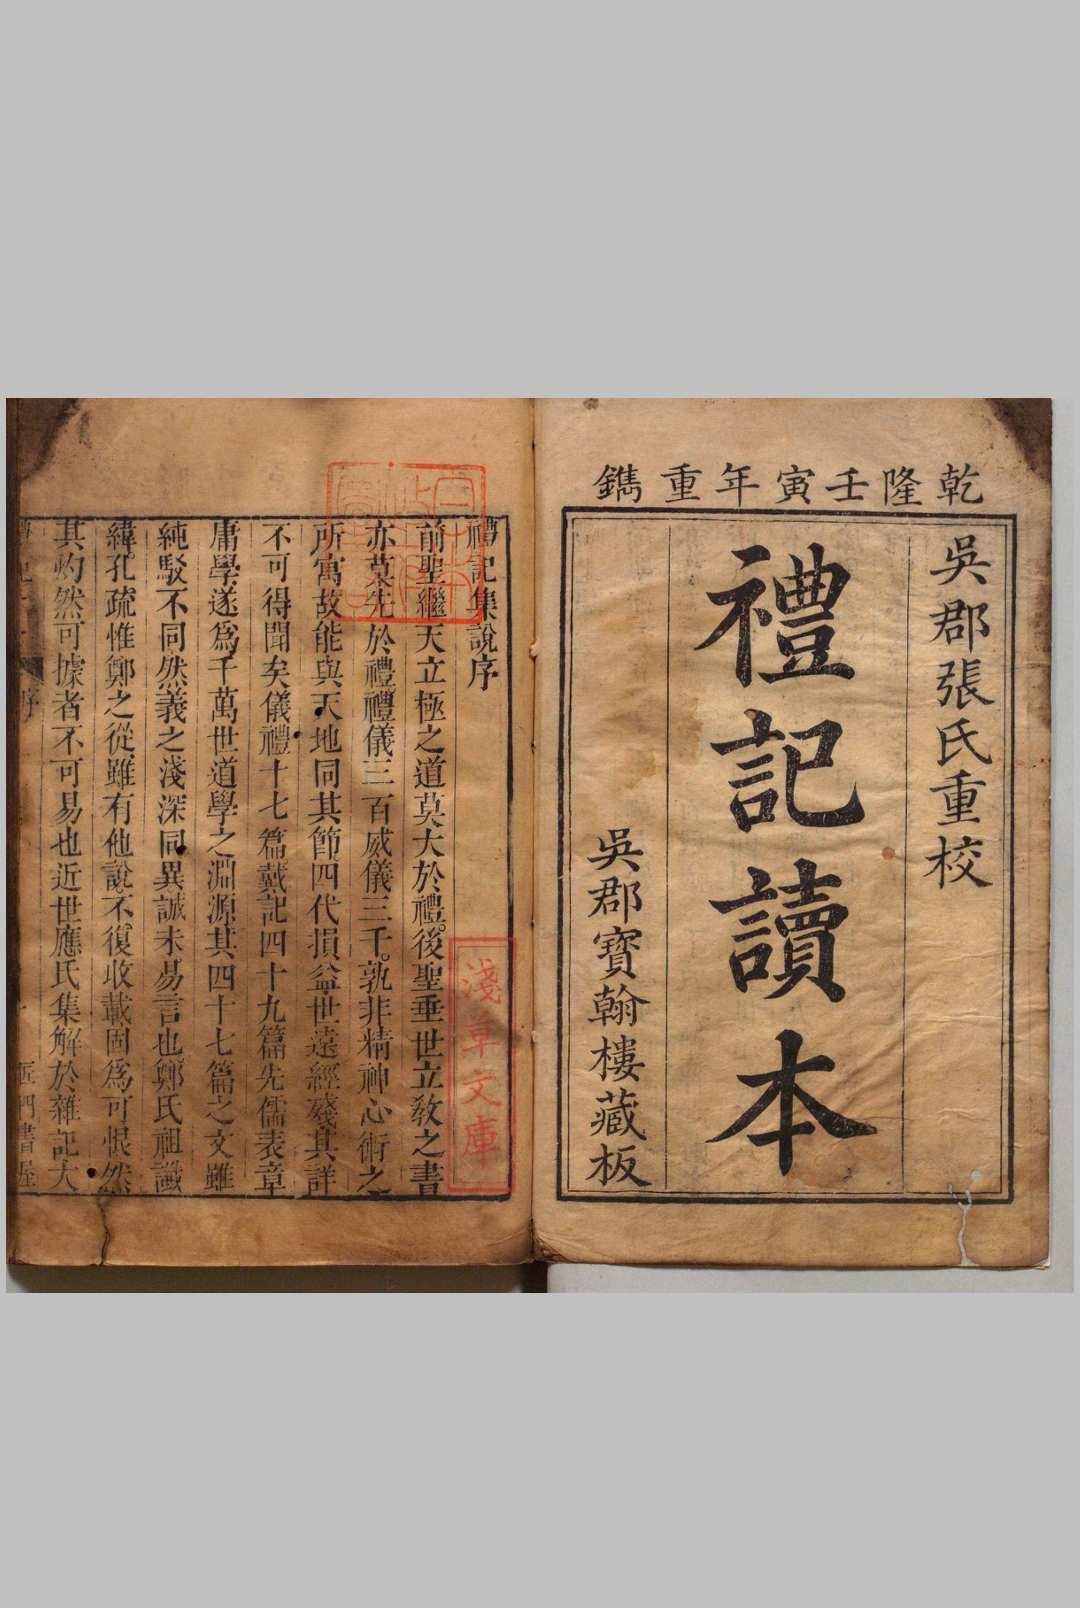 乾隆壬寅年重鐫
吳郡張氏重校
禮記讀本
吳郡寶翰樓藏板
禮記集說序
前聖繼天立極之道莫大於禮。後聖垂世立敎之書
亦莫先於禮禮儀三百威儀三千。孰非精神心術之
所寓故能與天地同其節四代損益世遠經殘其詳
不可得聞矣儀禮十七篇戴記四十九篇先儒表章
庸學遂爲千萬世道學之淵源其四十七篇之文雖
純駁不同然義之淺深同異誠未易言也鄭氏祖讖
緯孔疏惟鄭之從雖有他說不復收載固爲可恨然
其灼然可據者不可易也近世應氏集解於雜記大
序
匠門書屋
淺草文庫